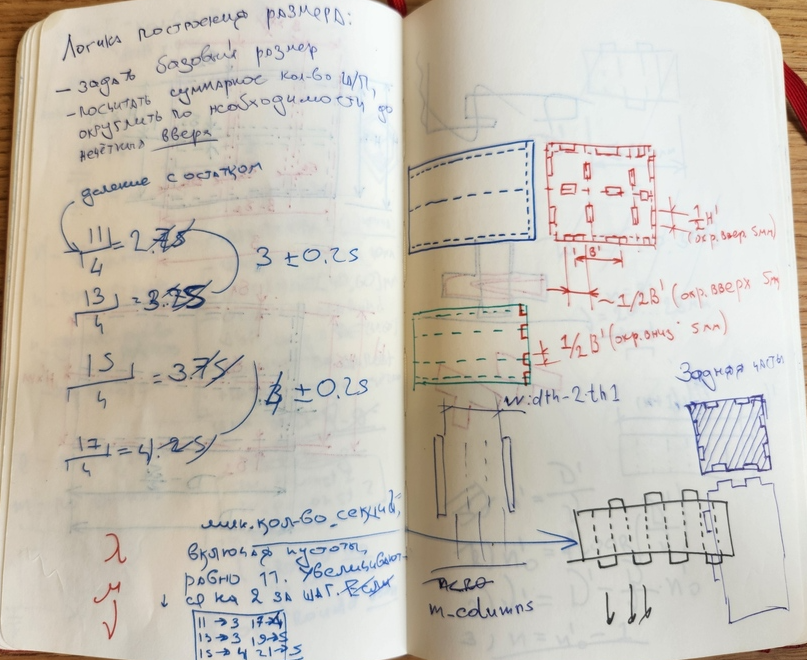 Логика построения размера:
— задать базовый размер
— посчитать суммарное кол-во ш/п,
округлить по необходимости до
нечётных вверх
деление с остатком
11/4 = 2.75
3 ± 0.25
13/4 = 3.25
15/4 = 3.75
4 ± 0.25
17/4 = 4.25
мин. кол-во секций,
включая пустоты,
равно 11. Увеличивают
ся на 2 за шаг.
11 → 3 17 → 4
13 → 3 19 → 5
15 → 4 21 → 5
λ
μ
ν
1/2 H'
(окр. вверх 5мм)
B'
~ 1/2 B' (окр. вверх 5
1/2 B' (окр. вниз 5мм)
width-2·th1
Задняя часть
m_columns